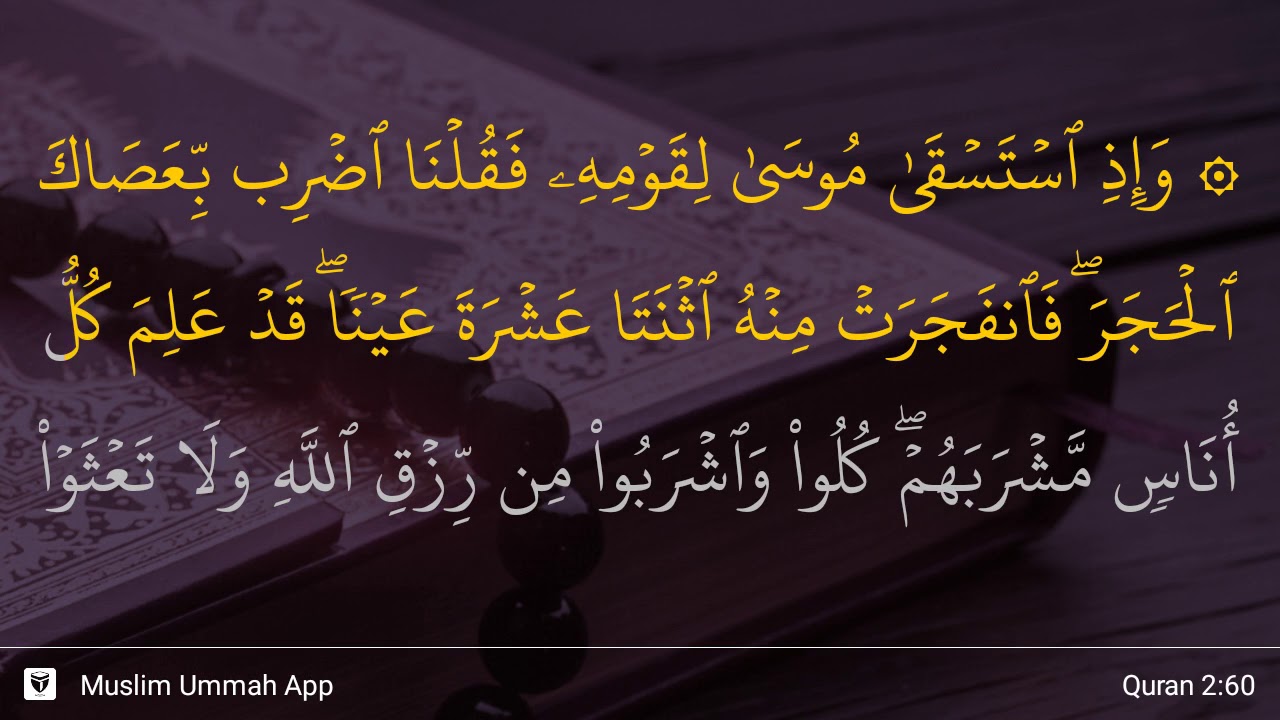 ۞ وَإِذِ ٱسۡتَسۡقَىٰ مُوسَىٰ لِقَوۡمِهِۦ فَقُلۡنَا ٱضۡرِب بِّعَصَاكَ
ٱلۡحَجَرَۖ فَٱنفَجَرَتۡ مِنۡهُ ٱثۡنَتَا عَشۡرَةَ عَيۡنٗاۖ قَدۡ عَلِمَ كُلُّ
أُنَاسٖ مَّشۡرَبَهُمۡۖ كُلُواْ وَٱشۡرَبُواْ مِن رِّزۡقِ ٱللَّهِ وَلَا تَعۡثَوۡاْ
Muslim Ummah App
Quran 2:60